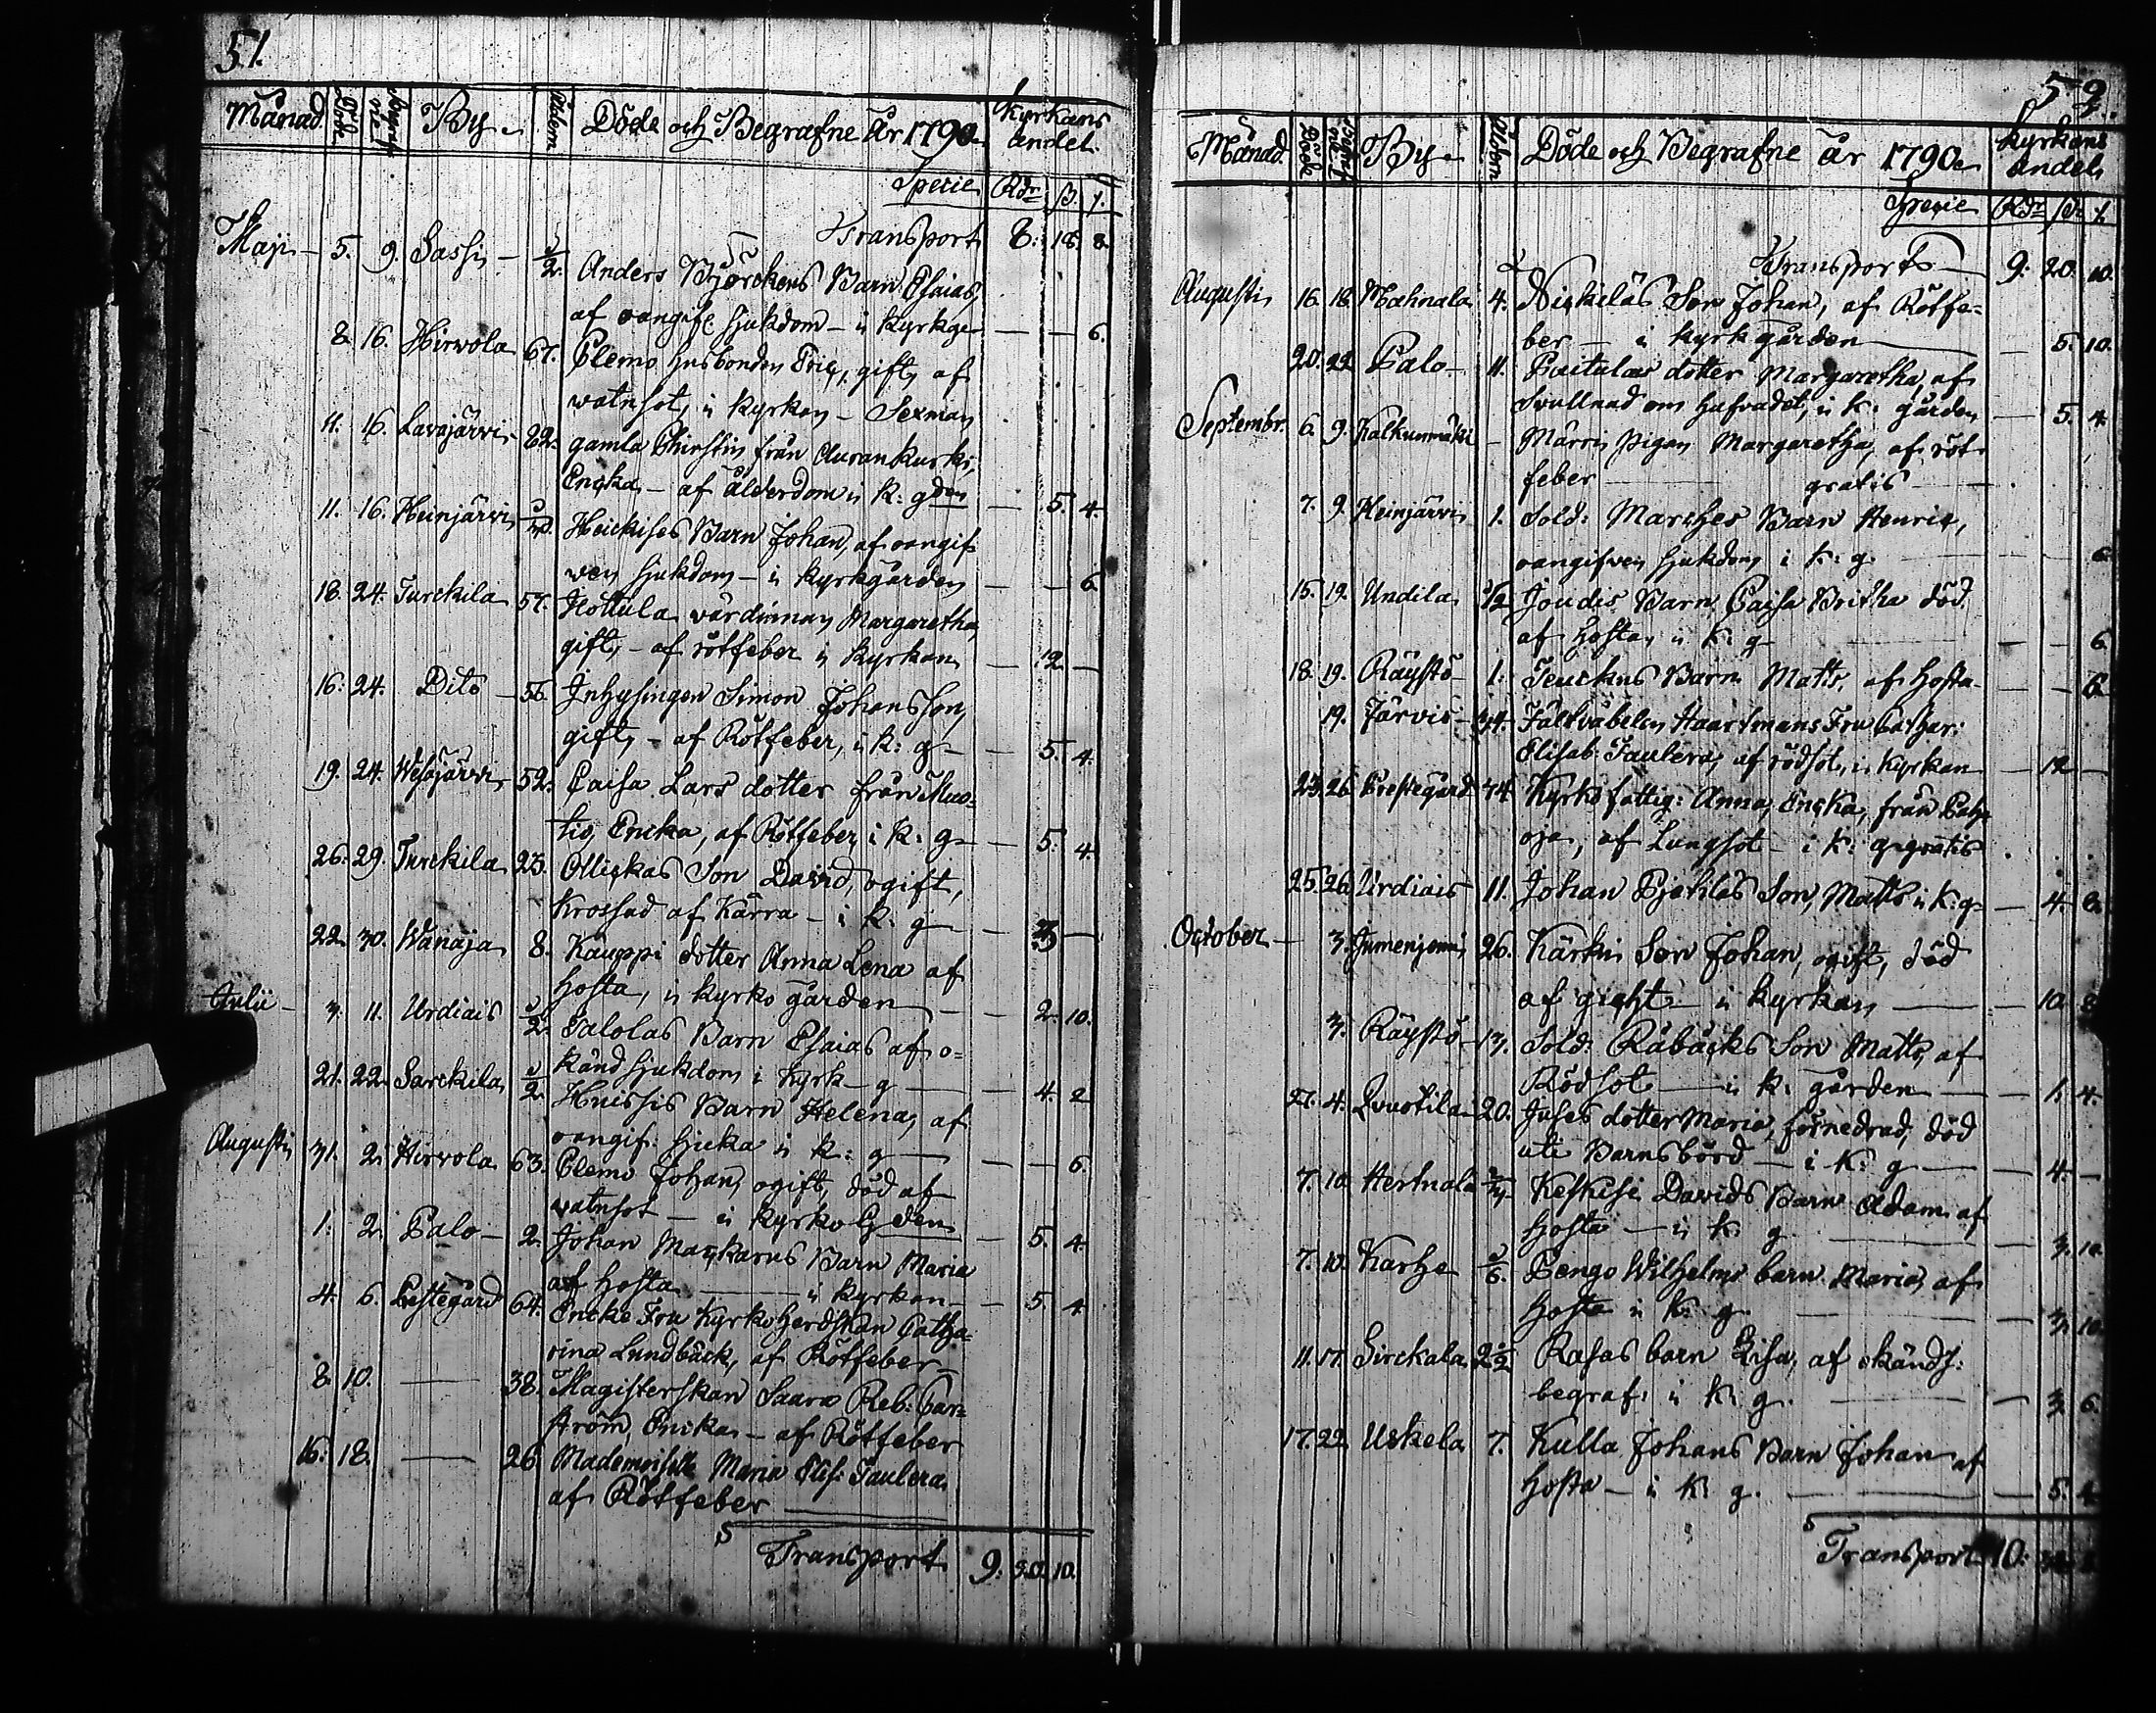 51.
Månad Döde Begrafne By Åldern Döde och Begrafne År 1790 Kyrkans andel.
Specie Rdr ß. 
Transport 8. 18. 8.
Maji 5. 9. Sassi 2. Anders Björckens Barn Esaias,
af oangifz sjukdom i Kyrkg 6.
8. 16. Hirvola 67. Clemo husbonden Eric, gift, af
watusot, i Kyrkan
11. 16. Lavajärvi 82. gamla Christin från Aurankurki,
Encka af ålderdom i K: gden 5. 4.
11. 16. Kunjärvi Heickises Barn Johan, af oangif
ven sjukdom i Kyrkgården 6
18. 24. Turckila 57. Hottula värdinnan Margaretha,
gift, af rötfeber i Kyrkan 12
16. 24. Dito 56. Inhysingen Simon Johansson,
gift, af Rötfeber, i K: g 5. 4.
19. 24. Wesajärvi 52. Caisa Lars dotter från Muo=
tio, Encka, af Rötfeber i K: g 5. 4.
26. 29. Turckila 23. Ollickas Son David, ogift,
Krossad af Kärra i K: g
22. 30. Wanaja 8. Kauppi dotter Anna Lena af
hosta, i Kyrko gården 2. 10.
Julii 3. 11. Urdiais 2. Talolas Barn Esaias af o=
känd sjukdom i Kyrk g 4. 2
21. 22. Sarckila 2. Huissis Barn Helena, af
oangif: sjuka i K: g 6.
Augusti 31. 2. Hirvola 63. Clemo Johan, ogift, död af
watusot i Kyrko Gden 5. 4.
1. 2. Palo 2. Johan Mackarus Barn Maria
af hosta i Kyrkan 5. 4
4. 6. Prestegård 64. Encke Fru Kyrkoherdskan Catha=
rina Lundbäck, af Rötfeber
8. 10. 38. Magisterskan Saara Reb: 
ström, Encka af Rötfeber
16. 18. 26 Mademoiselle Maria Elis: Taulera
af Rötfeber
Transport 9. 20. 10.
52.
Månad. Döde Begrafne By Åldern Döde och Begrafne år 1790 Kyrkans andel
Specie Rdr ß
Transport 9. 20. 10.
Augusti 16. 18. Mahnala 4. Nickiläs Son Johan, af Rötfe=
ber i Kyrkgården 5. 10.
20. 22 Palo 11. dotter Margaretha, af
Svullnad om hufvudet, i K: gården 5. 4
Septembr. 6. 9. Kalkunmäki Märri pigan Margaretha, af röt
feber gratis
7. 9. Heinjärvi 1. Sold: Marches Barn Henric,
oangifven sjukdom i K: g. 6
15. 19. Undila Joudis Barn Caisa Britha död
af hosta, i K: g 6
18. 19. Räystö 1. Teuckus Barn Matts, af hosta 6
19. Järvis 34. Fältväbelen Haartmans Fru Cathar:
Elisab: Taulera, af rödsot, i Kyrkan 12
23. 26 Prestegård 74 Kyrkofattig: Anna, Encka, från
oja, af Lungsot i K: g gratis
25. 26 Urdiais 11. Johan Pjekiläs Son, Matts i K: g 4. 
October 3. Jumenjemi 26. Kärki Son Johan, ogift, död
af gicht i Kyrkan 10. 8
3. Räystö 13. Sold: Råbäcks Son Matts, af
Rödsot i K: gården 1. 4.
27. 4. Quotila 20. Juses dotter Maria, förnedrad, död
uti Barnsbörd i K: g 4.
7. 10 Hertuala Keskisi Davids Barn Adam af
hosta i K: g 3. 10
7. 10. Karhe 6. Pengo Wilhelms barn Maria, af
hosta i K: g. 3. 10.
11. 17. Sirckala Rasas barn Lisa, af okändt:
begraf: i K: g. 3. 6.
17. 22 Uskela 7. Kulla Johans Barn Johan af
hosta i K: g. 5. 4
Transport 10.